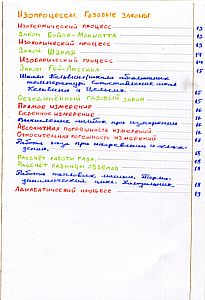 Изопроцессы. Газовые законы
Изотермический процесс 13
Закон Бойля-Мариотта 13
Изохорический процесс 13
Закон Шарля 14
Изобарический процесс 14
Закон Гей-Люссака 15
Шкала Кельвина (шкала абсолютных
температур). Сопоставление шкал
Кельвина и Цельсия. 15
Объединённый газовый закон 15
Прямое измерение 16
Косвенное измерение 16
Вычисление ошибок при измерении 16
Абсолютная погрешность измерений 16
Относительная погрешность измерений 16
Работа газа при нагревании и охлаж-
дении. 18
Рассчёт работы газа. 18
Рассчёт разницы объёмов 18
Работа тепловых машин. Термо-
динамический цикл. Холодильник. 18
Адиабатический процесс 19